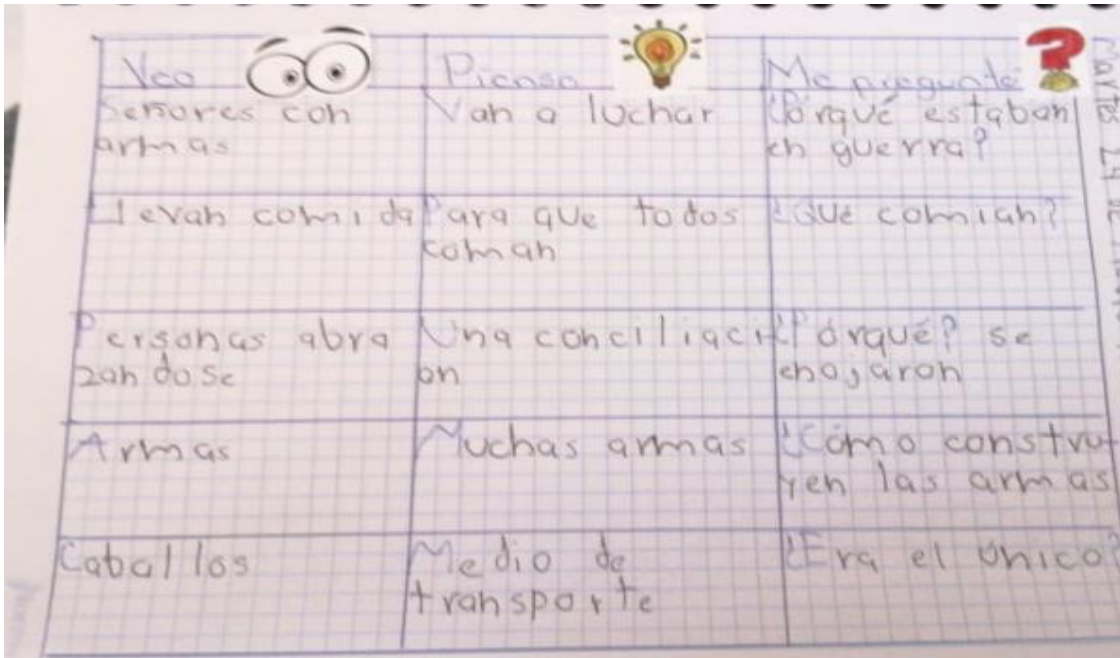 Veo
Pienso
Me pregunto
Señores con
armas
Van a luchar
¿Porqué estaban
en guerra?
Llevan comida
Para que todos
coman
¿Qué comían?
Personas abra
zandose
Una conciliaci
on
¿Porqué? se
enojaron
Armas
Muchas armas
¿Cómo constru
yen las armas
Caballos
Medio de
transporte
¿Era el único?